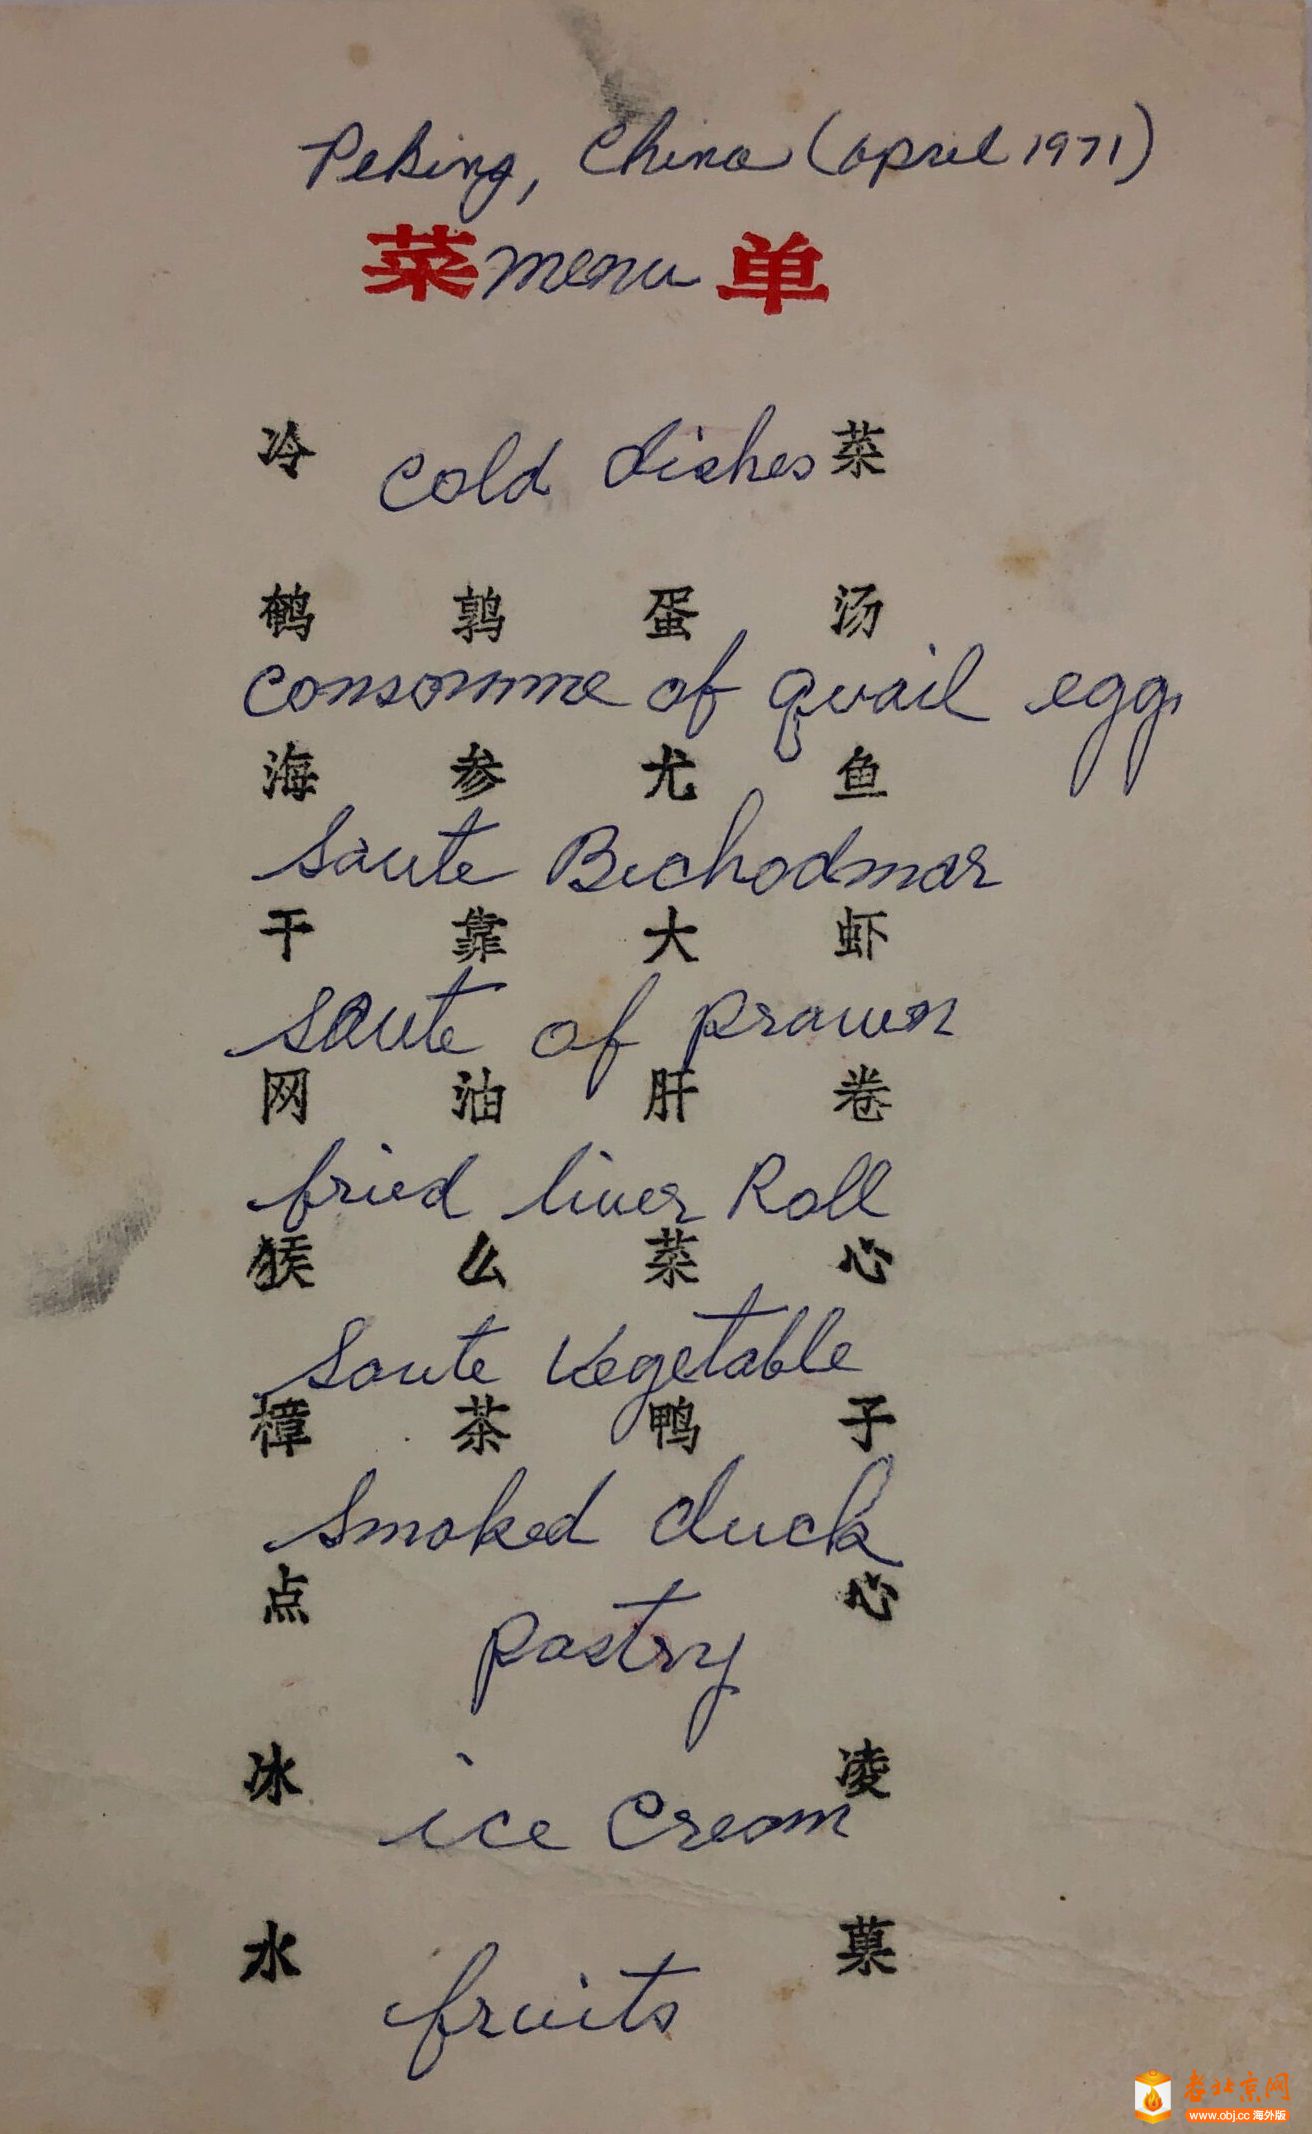 Peking, China (april 1971)
菜 menu 单
冷 cold dishes 菜
鹌鹑蛋汤
consomme of quail egg
海参尤鱼
saute Bechodmar
干靠大虾
saute of prawn
网油肝卷
fried liver Roll
猴么菜心
saute vegetable
樟茶鸭子
smoked duck
点心
pastry
冰凌
ice cream
水菓
fruits
老北京网
www.obj.cc 海外版